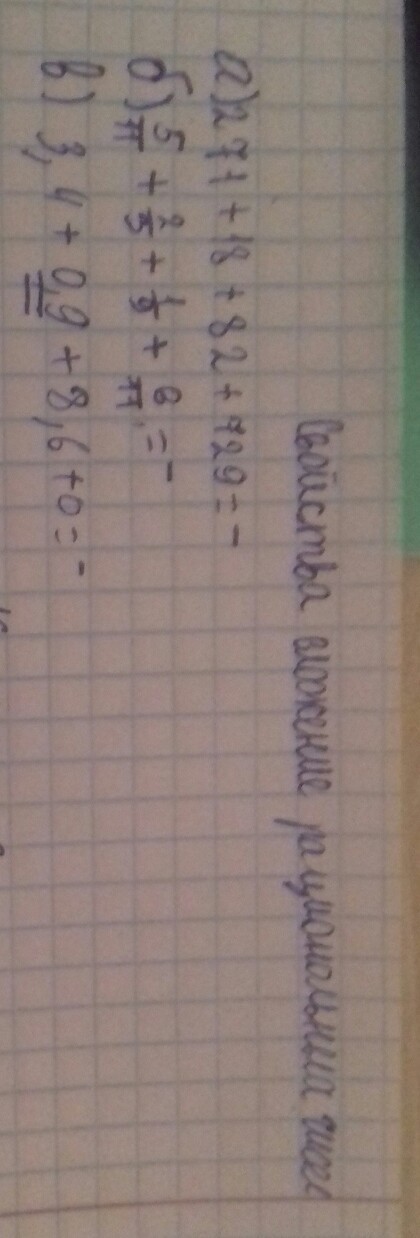 Свойства сложение рациональных чисел
а) 271 + 18 + 82 + 729 = -
б) 5/11 + 2/5 + 1/5 + 6/11 = -
в) 3,4 + 0,9 + 8,6 + 0 = -